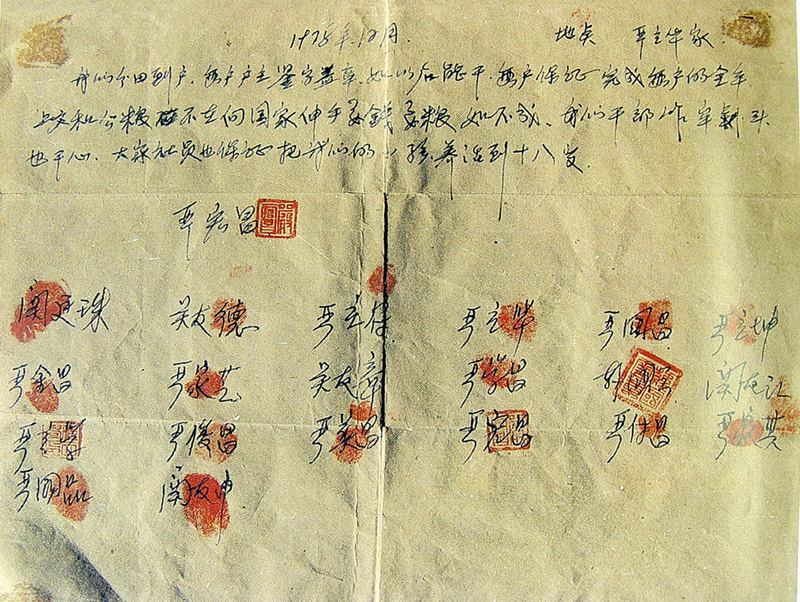 1978年12月. 地点 严立华家.
我们分田到户，每户户主签字盖章，如以后能干，每户保证完成每户的全年
上交和公粮 不在向国家伸手要钱要粮 如不成，我们干部作牢刹头
也干心，大家社员也保证把我们的小孩养活到十八岁.
严宏昌
关廷珠 关友德 严立符 严立华 严国昌 严立坤
严金昌 严家芝 关友章 严学昌 韩国云 关友江
严立学 严俊昌 严美昌 严宏昌 严付昌 严家其
严国品 关友申